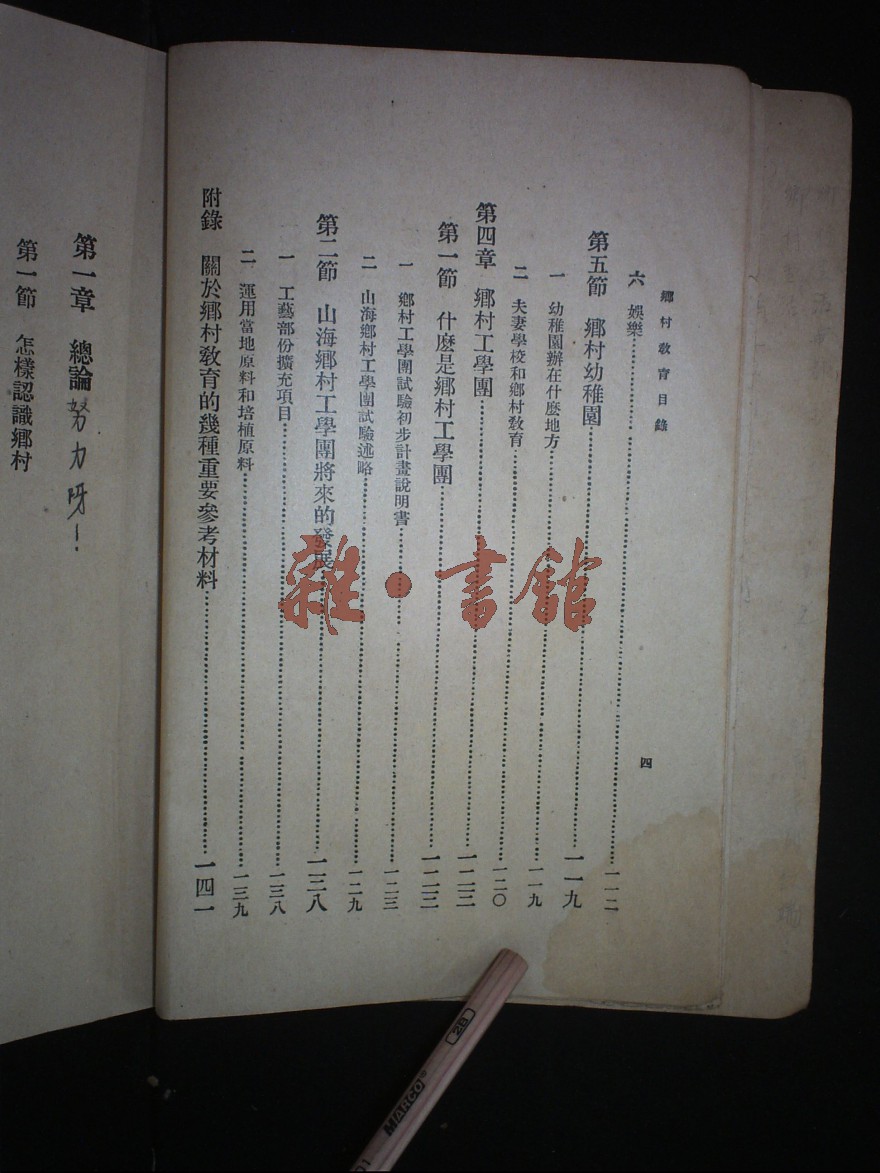 鄉村教育目錄
四
六 娛樂 一一二
第五節 鄉村幼稚園 一一九
一 幼稚園辦在什麽地方 一一九
二 夫妻學校和鄉村教育 一二〇
第四章 鄉村工學團 一二三
第一節 什麽是鄉村工學團 一二三
一 鄉村工學團試驗初步計畫說明書 一二三
二 山海鄉村工學團試驗述略 一二九
第二節 山海鄉村工學團將來的發展 一三八
一 工藝部份擴充項目 一三八
二 運用當地原料和培植原料 一三九
附錄 關於鄉村教育的幾種重要參考材料 一四一
第一章 總論 努力呀！
第一節 怎樣認識鄉村
雜·書館
MARCO 2B